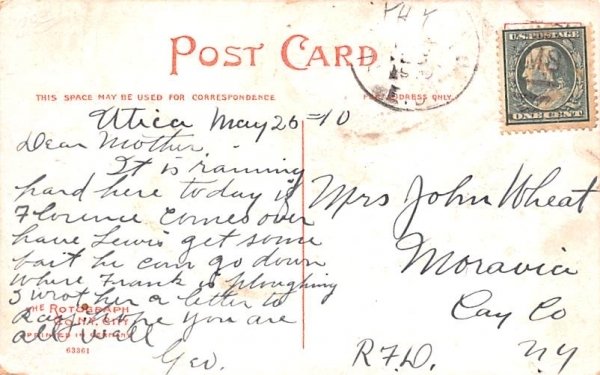 POST CARD
THIS SPACE MAY BE USED FOR CORRESPONDENCE
ADDRESS ONLY.
U.S. POSTAGE
ONE CENT
Utica May 26 - 10
Dear Mother,
It is raining
hard here today if
Florence comes over
have Lewis get some
bait he can go down
where Frank is ploughing
I wrote her a letter to
day hope you are
all well
Geo.
Mrs John Wheat
Moravia
Cay Co
R.F.D. NY
THE ROTOGRAPH
CO. N.Y. CITY
PRINTED IN GERMANY
63361